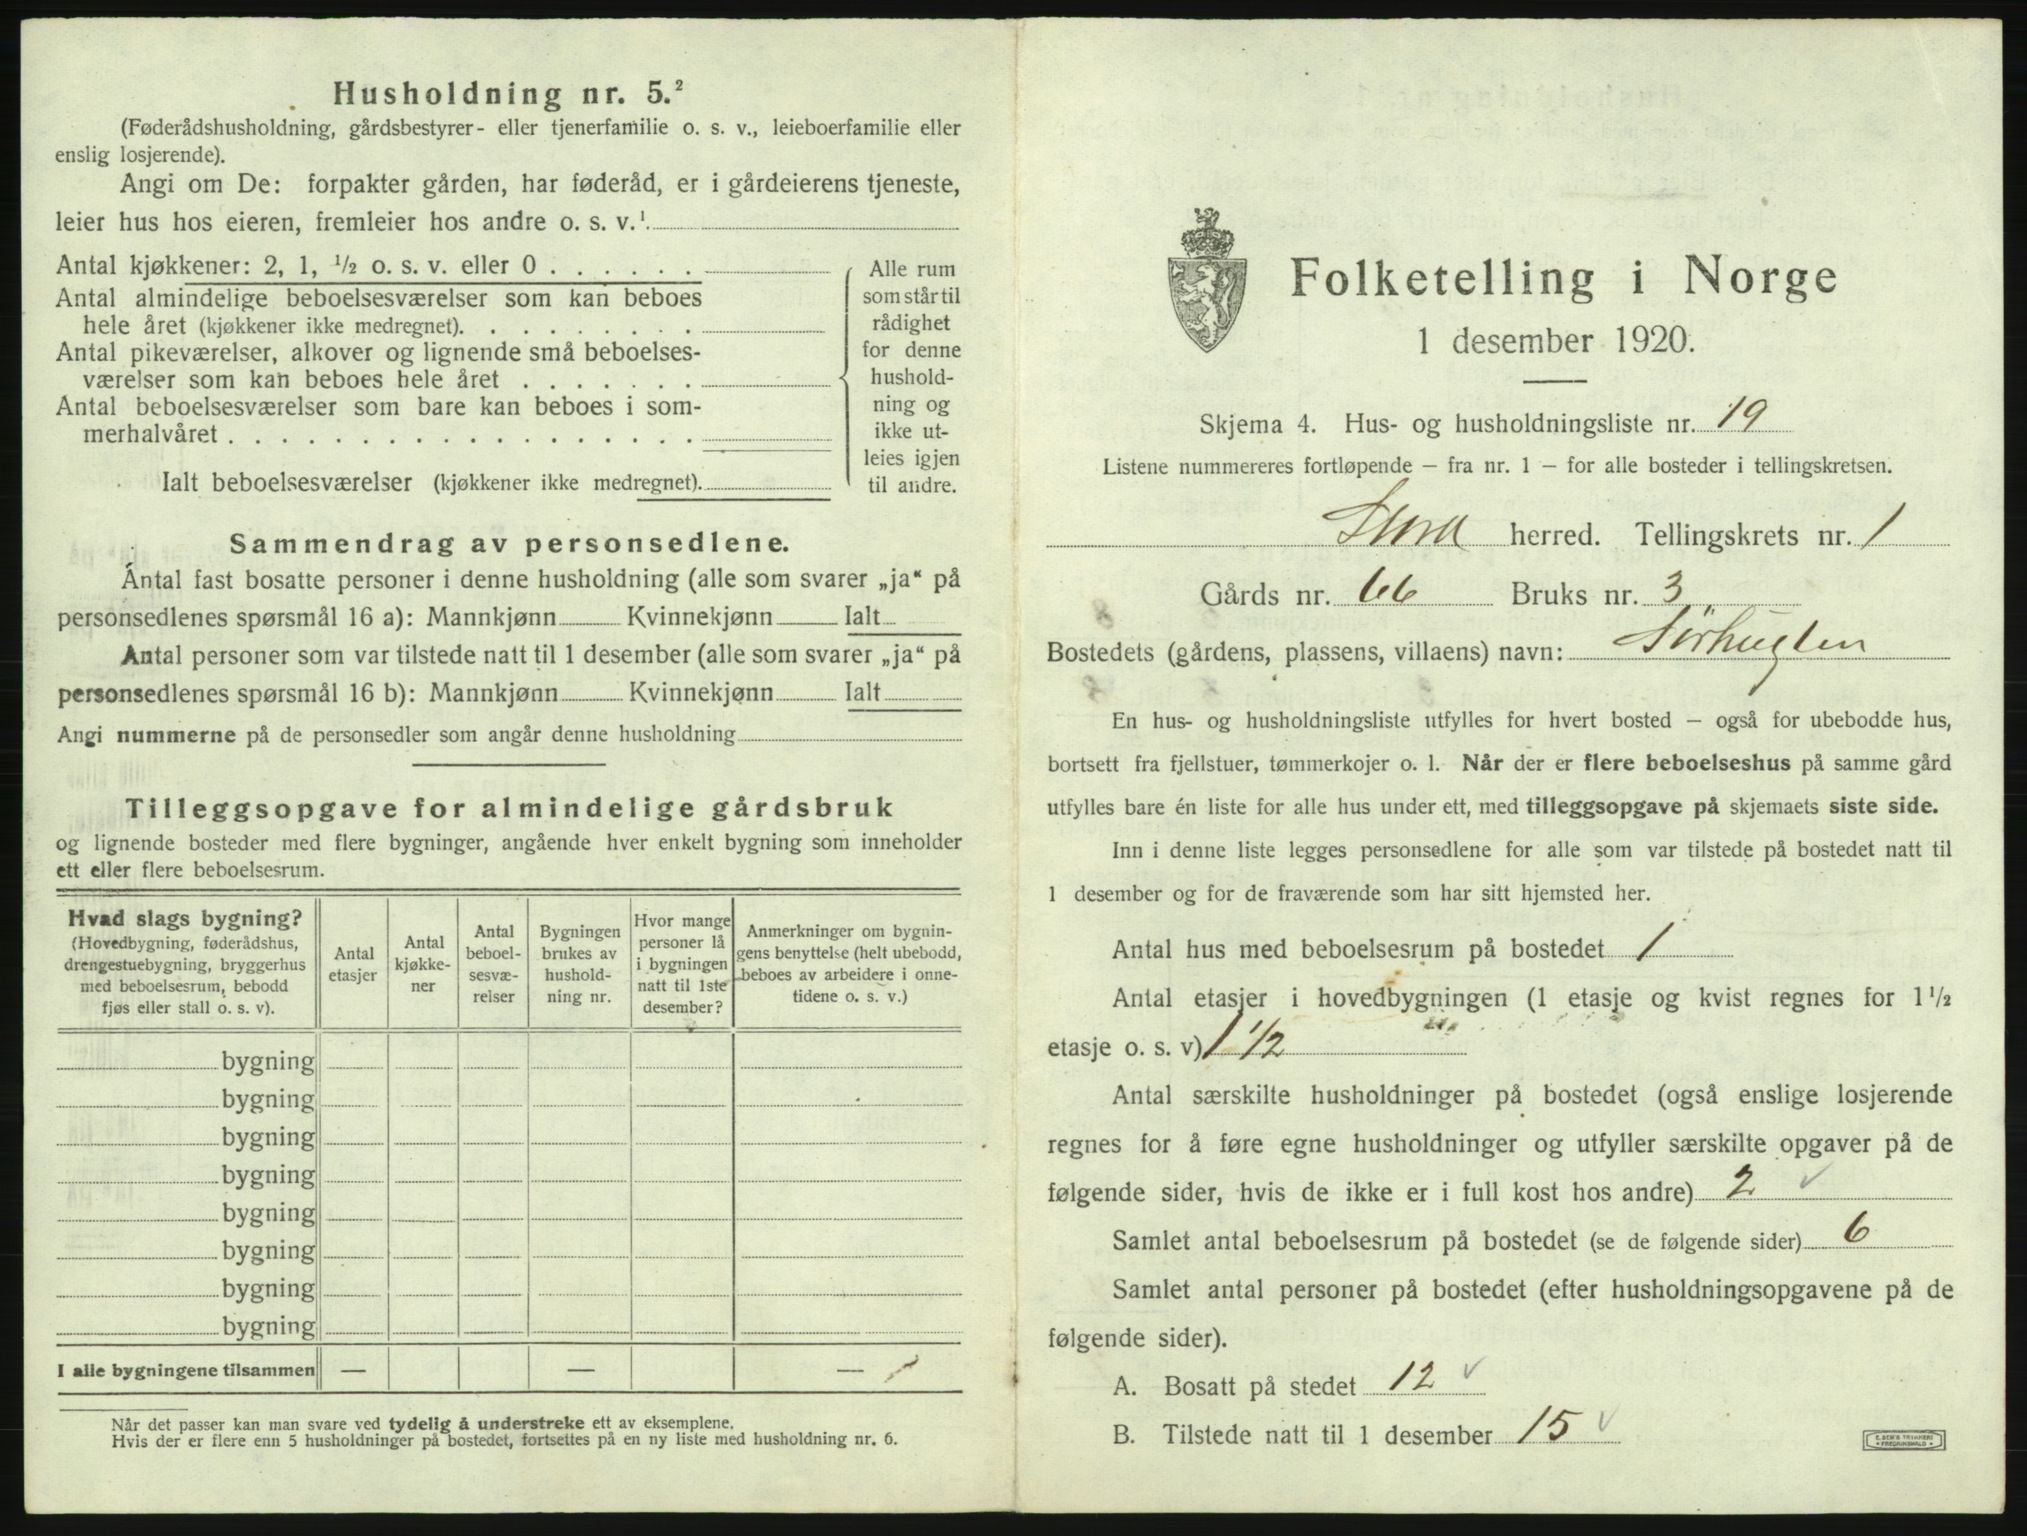 Husholdning nr. 5.²
(Føderådshusholdning, gårdsbestyrer- eller tjenerfamilie o. s. v., leieboerfamilie eller
enslig losjerende).
Angi om De: forpakter gården, har føderåd, er i gårdeierens tjeneste,
leier hus hos eieren, fremleier hos andre o. s. v.¹
Antal kjøkkener: 2, 1, ½ o. s. v. eller 0 . . . . . .
Antal almindelige beboelsesværelser som kan beboes
hele året (kjøkkener ikke medregnet). . . . . . . . .
Antal pikeværelser, alkover og lignende små beboelses-
værelser som kan beboes hele året . . . . . . .
Antal beboelsesværelser som bare kan beboes i som-
merhalvåret . . . . . . . . . . . . . . . . . .
Ialt beboelsesværelser (kjøkkener ikke medregnet).
Alle rum
som står til
rådighet
for denne
hushold-
ning og
ikke ut-
leies igjen
til andre.
Sammendrag av personsedlene.
Antal fast bosatte personer i denne husholdning (alle som svarer „ja“ på
personsedlenes spørsmål 16 a): Mannkjønn Kvinnekjønn Ialt
Antal personer som var tilstede natt til 1 desember (alle som svarer „ja“ på
personsedlenes spørsmål 16 b): Mannkjønn Kvinnekjønn Ialt
Angi nummerne på de personsedler som angår denne husholdning
Tilleggsopgave for almindelige gårdsbruk
og lignende bosteder med flere bygninger, angående hver enkelt bygning som inneholder
ett eller flere beboelsesrum.
Hvad slags bygning?
(Hovedbygning, føderådshus,
drengestuebygning, bryggerhus
med beboelsesrum, bebodd
fjøs eller stall o. s. v).
Antal
etasjer
Antal
kjøkke-
ner
Antal
beboel-
sesvæ-
relser
Bygningen
brukes av
hushold-
ning nr.
Hvor mange
personer lå
i bygningen
natt til 1ste
desember?
Anmerkninger om bygnin-
gens benyttelse (helt ubebodd,
beboes av arbeidere i onne-
tidene o. s. v.)
bygning
bygning
bygning
bygning
bygning
bygning
bygning
bygning
I alle bygningene tilsammen — — —
Når det passer kan man svare ved tydelig å understreke ett av eksemplene.
Hvis der er flere enn 5 husholdninger på bostedet, fortsettes på en ny liste med husholdning nr. 6.
Folketelling i Norge
1 desember 1920.
Skjema 4. Hus- og husholdningsliste nr. 19
Listene nummereres fortløpende – fra nr. 1 – for alle bosteder i tellingskretsen.
Stord herred. Tellingskrets nr. 1
Gårds nr. 66 Bruks nr. 3
Bostedets (gårdens, plassens, villaens) navn: Sørhuglen
En hus- og husholdningsliste utfylles for hvert bosted – også for ubebodde hus,
bortsett fra fjellstuer, tømmerkojer o. l. Når der er flere beboelseshus på samme gård
utfylles bare én liste for alle hus under ett, med tilleggsopgave på skjemaets siste side.
Inn i denne liste legges personsedlene for alle som var tilstede på bostedet natt til
1 desember og for de fraværende som har sitt hjemsted her.
Antal hus med beboelsesrum på bostedet 1
Antal etasjer i hovedbygningen (1 etasje og kvist regnes for 1½
etasje o. s. v) 1 1/2
Antal særskilte husholdninger på bostedet (også enslige losjerende
regnes for å føre egne husholdninger og utfyller særskilte opgaver på de
følgende sider, hvis de ikke er i full kost hos andre) 2 ✓
Samlet antal beboelsesrum på bostedet (se de følgende sider) 6
Samlet antal personer på bostedet (efter husholdningsopgavene på de
følgende sider).
A. Bosatt på stedet 12 ✓
B. Tilstede natt til 1 desember 15 ✓